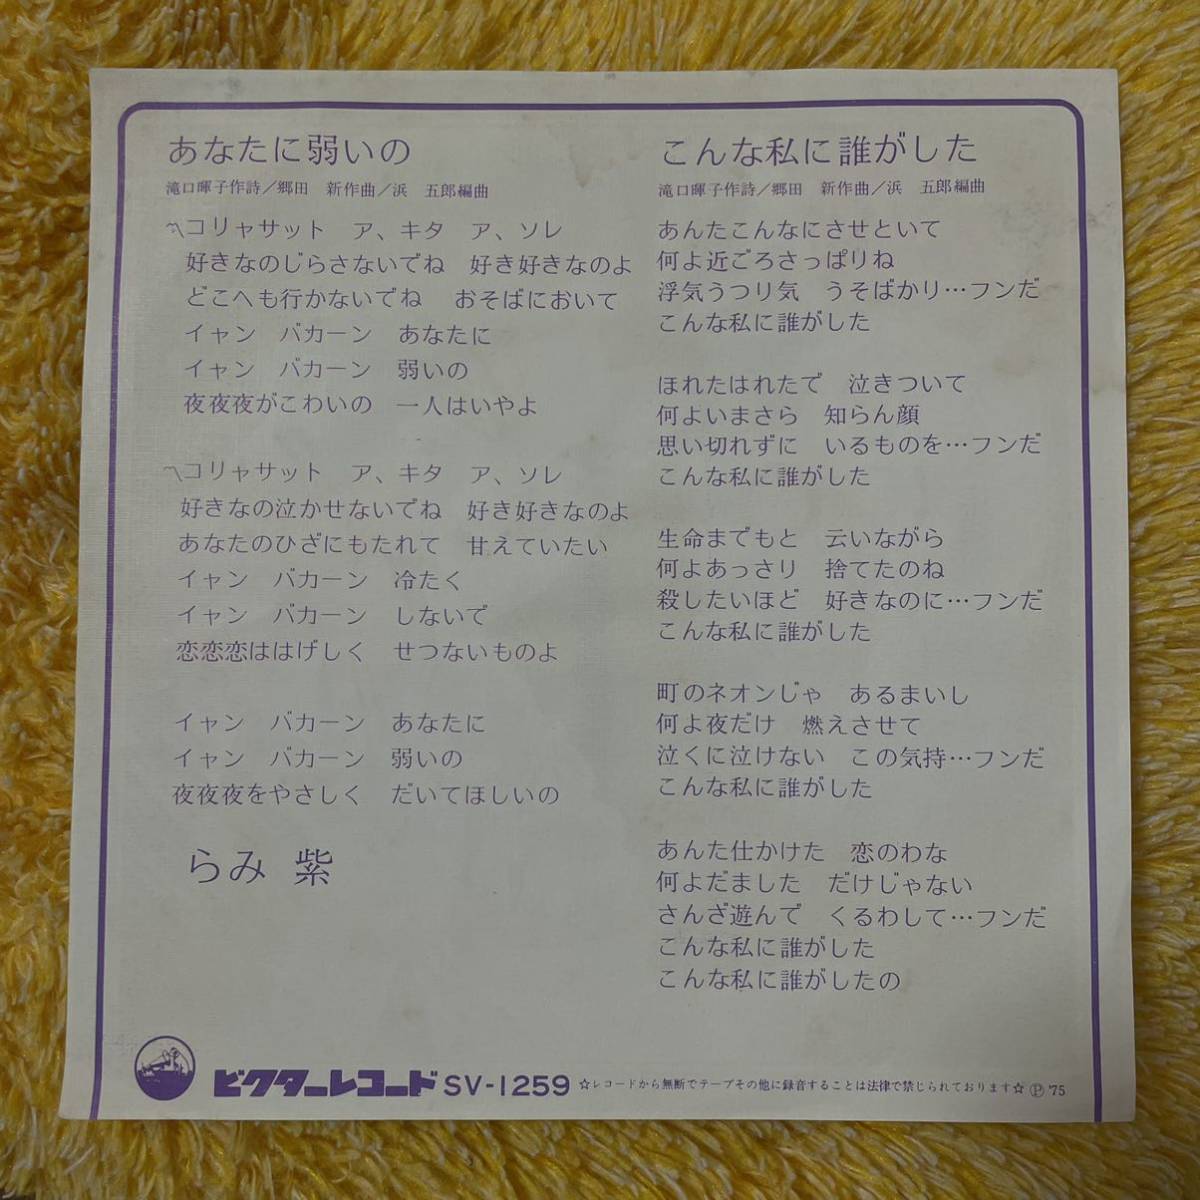 あなたに弱いの
滝口暉子作詩／郷田　新作曲／浜　五郎編曲
〽コリャサット　ア、キタ　ア、ソレ
好きなのじらさないでね　好き好きなのよ
どこへも行かないでね　おそばにおいて
イャン　バカーン　あなたに
イャン　バカーン　弱いの
夜夜夜がこわいの　一人はいやよ
〽コリャサット　ア、キタ　ア、ソレ
好きなの泣かせないでね　好き好きなのよ
あなたのひざにもたれて　甘えていたい
イャン　バカーン　冷たく
イャン　バカーン　しないで
恋恋恋ははげしく　せつないものよ
イャン　バカーン　あなたに
イャン　バカーン　弱いの
夜夜夜をやさしく　だいてほしいの
らみ 紫
こんな私に誰がした
滝口暉子作詩／郷田　新作曲／浜　五郎編曲
あんたこんなにさせといて
何よ近ごろさっぱりね
浮気うつり気　うそばかり…フンだ
こんな私に誰がした
ほれたはれたで　泣きついて
何よいまさら　知らん顔
思い切れずに　いるものを…フンだ
こんな私に誰がした
生命までもと　云いながら
何よあっさり　捨てたのね
殺したいほど　好きなのに…フンだ
こんな私に誰がした
町のネオンじゃ　あるまいし
何よ夜だけ　燃えさせて
泣くに泣けない　この気持…フンだ
こんな私に誰がした
あんた仕かけた　恋のわな
何よだました　だけじゃない
さんざ遊んで　くるわして…フンだ
こんな私に誰がした
こんな私に誰がしたの
ビクターレコード SV-1259 ☆レコードから無断でテープその他に録音することは法律で禁じられております☆ ℗ '75